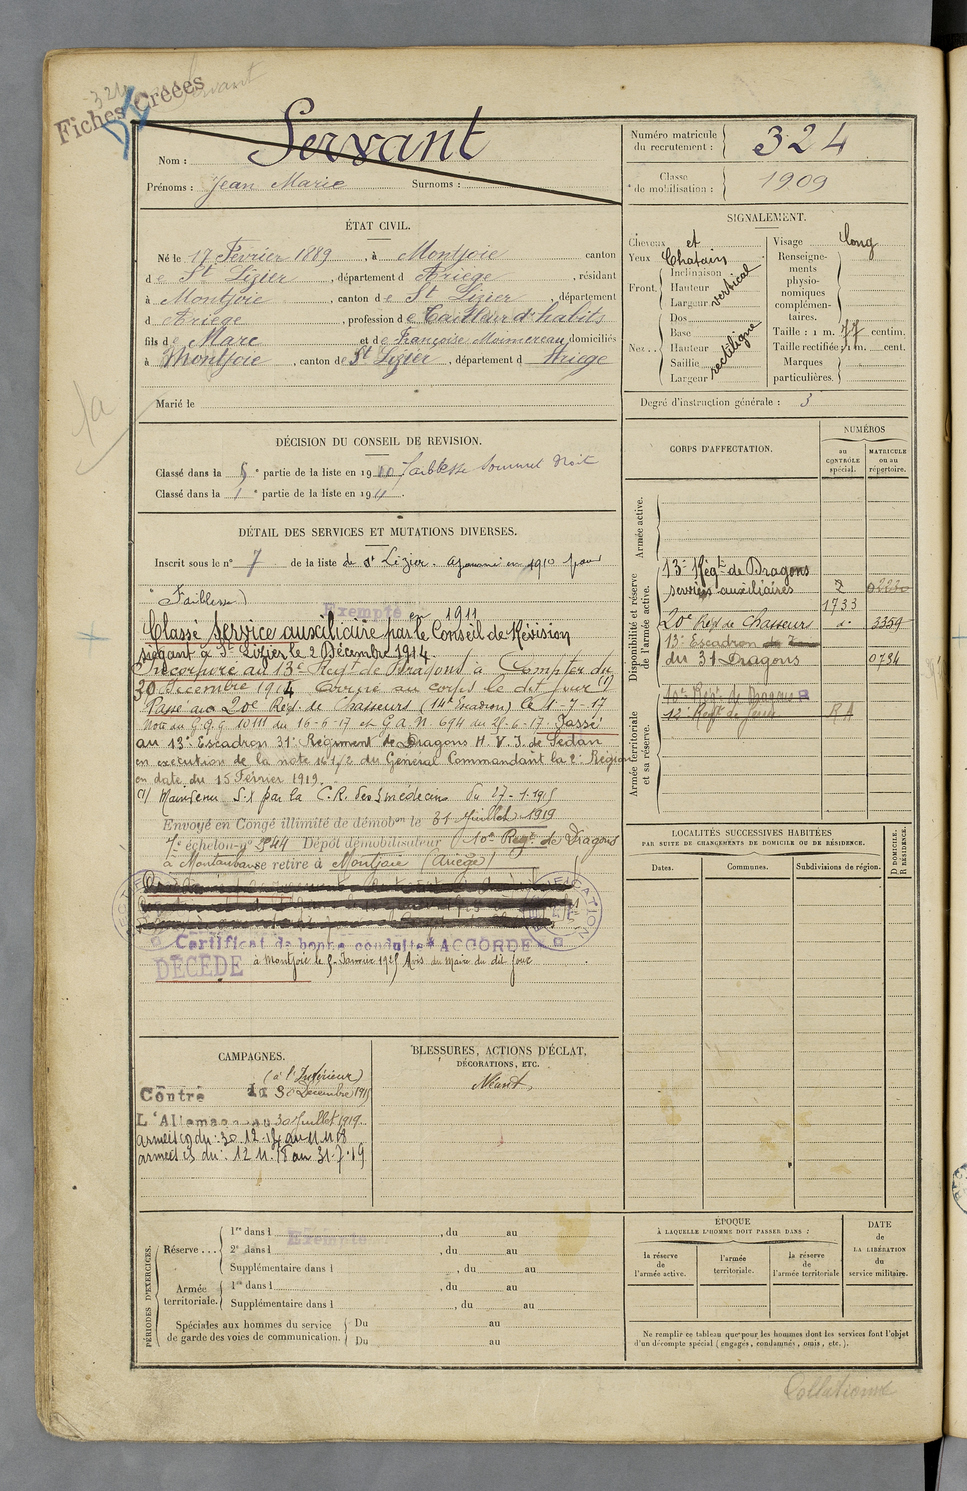 324 Servant
Fiches Créées
Nom : Servant
Prénoms : Jean Marie Surnoms :
Numéro matricule du recrutement : 324
Classe de mobilisation : 1909
ÉTAT CIVIL.
Né le 17 Février 1889, à Montjoie canton
de St Lizier, département d Ariège, résidant
à Montjoie, canton de St Lizier, département
d Ariège, profession de Tailleur d'habits
fils de Marc et de Françoise domiciliés
à Montjoie, canton de St Lizier, département d Ariège
Marié le
SIGNALEMENT.
Cheveux et
Yeux Chatain
Front. Inclinaison Hauteur Largeur vertical
Nez . . Dos Base Hauteur Saillie Largeur rectiligne
Visage long
Renseignements physionomiques complémentaires.
Taille : 1 m. 77 centim.
Taille rectifiée : 1 m. cent.
Marques particulières.
Degré d'instruction générale : 3
DÉCISION DU CONSEIL DE REVISION.
Classé dans la 5e partie de la liste en 1910 Faiblesse
Classé dans la 1e partie de la liste en 1911.
DÉTAIL DES SERVICES ET MUTATIONS DIVERSES.
Inscrit sous le n° 7 de la liste de St Lizier. ajourné en 1910 pour
Faiblesse)
Exempté en 1911
Classé service auxiliaire par le Conseil de Révision
siégant à St Lizier le 2 Décembre 1914.
Incorporé au 13e Regt de Dragons à Compter du
30 Décembre 1914 Arrivé au corps le dit jour (1)
Passé au 20e Régt de Chasseurs (14e Escadron) le 1-7-17
Note du G.Q.G 10111 du 16-6-17 et G.a.N. 694 du 25-6-17. Passé
au 13e Escadron 31e Régiment de Dragons H.V.J. de Sedan
en exécution de la note 16 1/2 du Général Commandant la 2e Région
en date du 15 Février 1919.
(1) Maintenu S.X par la C.R. des 3 médecins du 27-1-1915
Envoyé en Congé illimité de démobon le 31 Juillet 1919
7e échelon n° 2944 Dépôt démobilisateur (10e Regt de Dragons
à Montauban se retire à Montjoie (Ariège)
Certificat de bonne conduite ACCORDÉ
DÉCÉDÉ à Montjoie le 5 Janvier 1925 Avis du Maire du dit jour
CORPS D'AFFECTATION.
NUMÉROS
au CONTRÔLE spécial.
MATRICULE ou au répertoire.
Armée active.
Disponibilité et réserve de l'armée active.
13e Régt de Dragons
services auxiliaires 2 02230
1733
20e Régt de Chasseurs d° 3359
13e Escadron
du 31 Dragons 0734
Armée territoriale et sa réserve.
10e Regt de Dragons
12e Regt RA
LOCALITÉS SUCCESSIVES HABITÉES
PAR SUITE DE CHANGEMENTS DE DOMICILE OU DE RÉSIDENCE.
Dates. Communes. Subdivisions de région.
D DOMICILE. R RÉSIDENCE.
CAMPAGNES.
(à l'Intérieur)
Contre du 30 Décembre 1915
L'Allemagne au 30 Juillet 1919
armées cg du : 30.12.14 au 11.11.18
armées cs du : 12.11.18 au 31.7.19
BLESSURES, ACTIONS D'ÉCLAT,
DÉCORATIONS, ETC.
Néant
PÉRIODES D'EXERCICES.
Réserve . . . 1re dans l , du au
2e dans l Exempté , du au
Supplémentaire dans l , du au
Armée territoriale. 1re dans l , du au
Supplémentaire dans l , du au
Spéciales aux hommes du service de garde des voies de communication. Du au
Du au
ÉPOQUE
À LAQUELLE L'HOMME DOIT PASSER DANS :
la réserve de l'armée active.
l'armée territoriale.
la réserve de l'armée territoriale
DATE DE LA LIBÉRATION du service militaire.
Ne remplir ce tableau que pour les hommes dont les services font l'objet
d'un décompte spécial (engagés, condamnés, omis, etc.).
Collationné